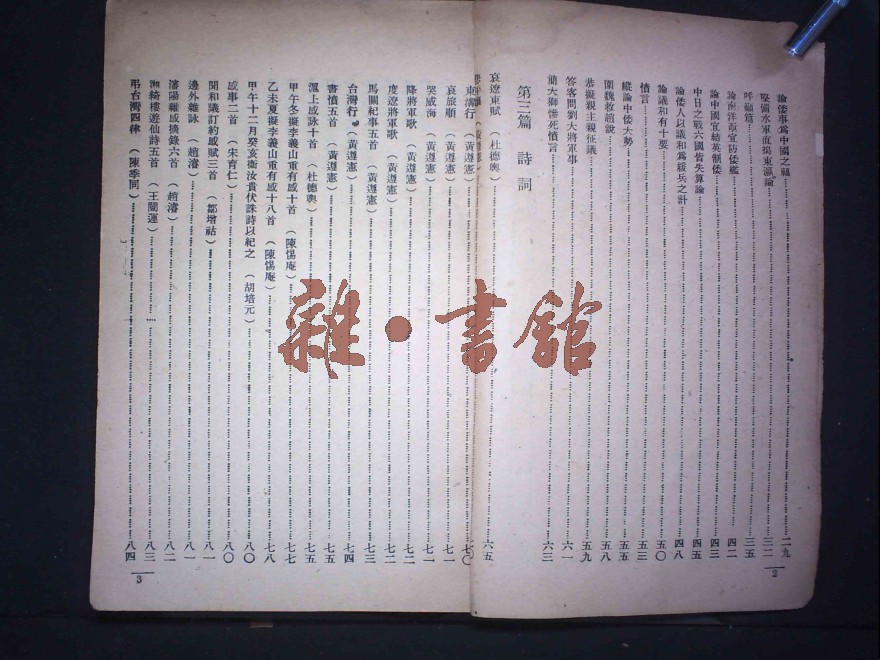 論倭事爲中國之福……二九
堅備水軍直搗東瀛論……三二
呼籲篇……三五
論南洋亟宜防倭艦……四二
論中國宜結英制倭……四三
中日之戰六國皆失算論……四五
論倭人以議和爲緩兵之計……四八
論議和有十要……五〇
憤言……五三
縱論中倭大勢……五五
圍魏救趙說……五八
恭擬親主親征議……五九
答客問劉大將軍事……六一
簡大獅慘死憤言……六三
第三篇 詩詞
哀遼東賦（杜德輿）……六五
（黃遵憲）
東溝行（黃遵憲）……七〇
哀旅順（黃遵憲）……七一
哭威海（黃遵憲）……七一
降將軍歌（黃遵憲）……七二
度遼將軍歌（黃遵憲）……七二
馬關紀事五首（黃遵憲）……七三
台灣行（黃遵憲）……七四
書憤五首（黃遵憲）……七五
滬上感詠十首（杜德輿）……七五
甲午冬擬李義山重有感十首（陳惕庵）……七七
乙未夏擬李義山重有感十八首（陳惕庵）……七八
甲午十二月癸亥衛汝貴伏誅詩以紀之（胡培元）……八〇
感事二首（宋育仁）……八〇
聞和議訂約感賦三首（鄒增祜）……八一
邊外雜詠（趙濬）……八一
瀋陽雜感摘錄六首（趙濬）……八二
湘綺樓遊仙詩五首（王闓運）……八三
弔台灣四律（陳季同）……八四
2
3
雜·書館